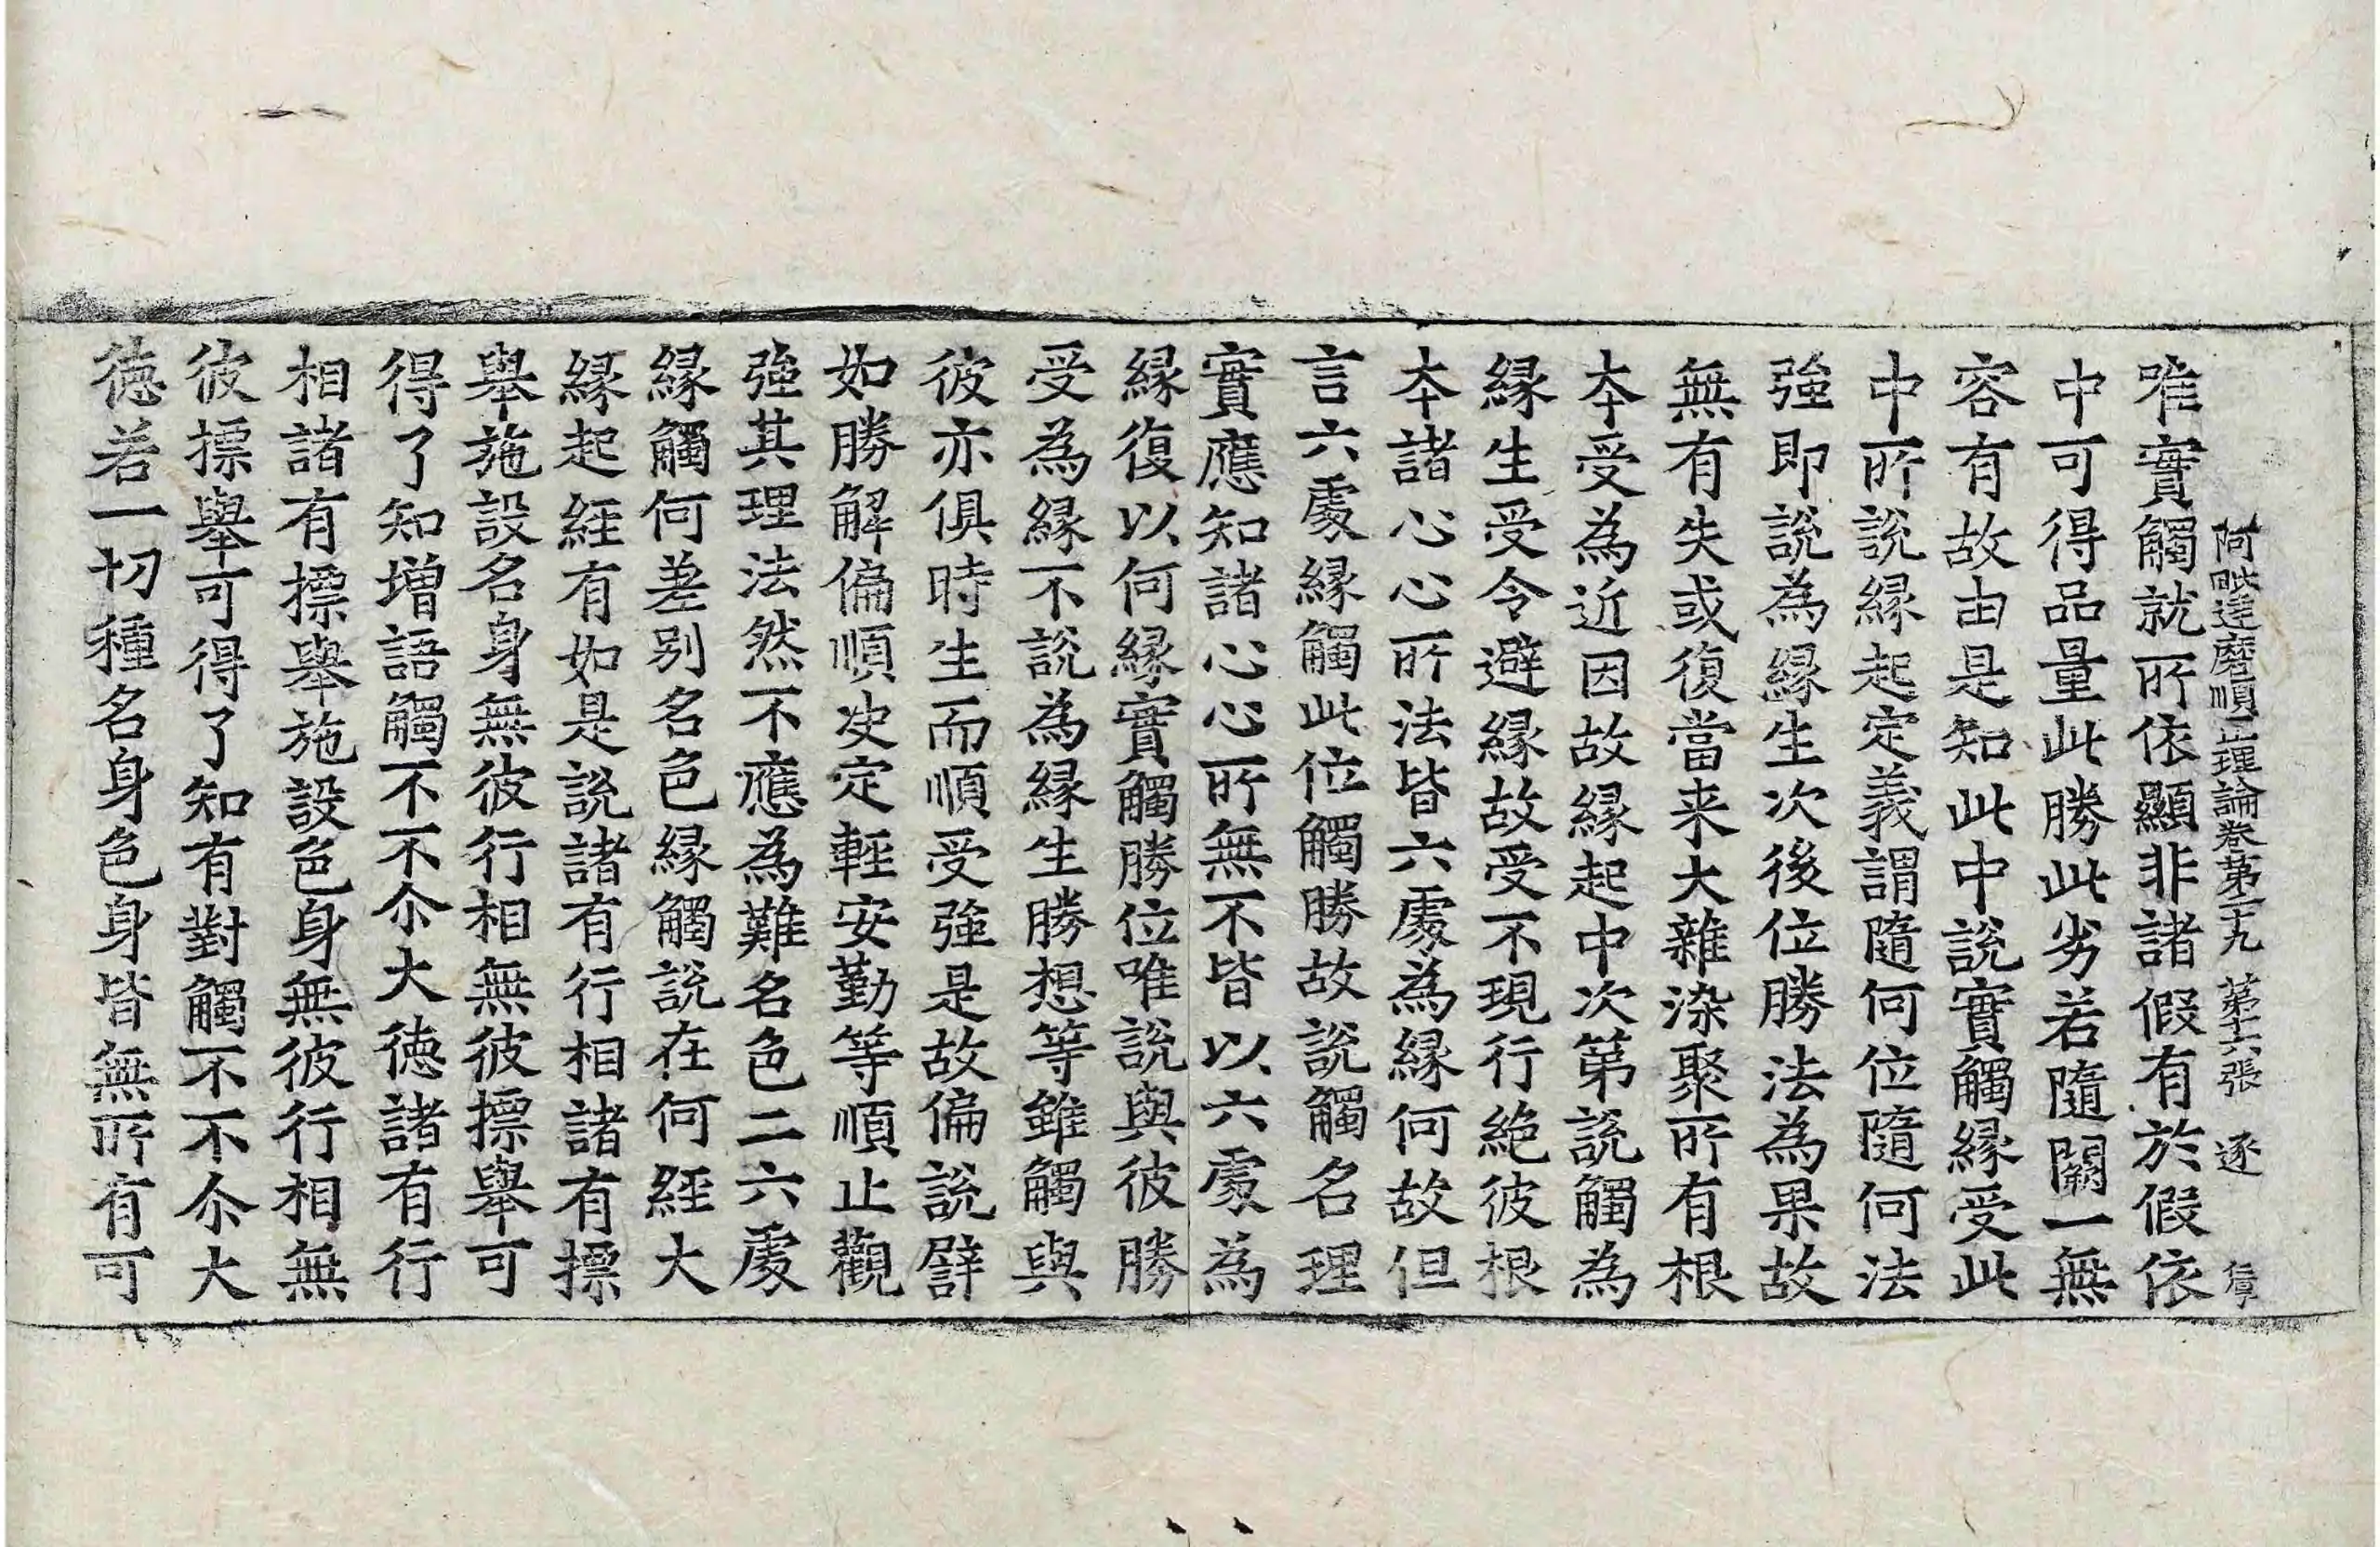 阿毗達磨順正理論卷第二十九 第十六張 逐
唯實觸就所依顯非諸假有於假依
中可得品量此勝此劣若隨闕一無
容有故由是知此中說實觸緣受此
中所說緣起定義謂隨何位隨何法
強即說為緣生次後位勝法為果故
無有失或復當来大雜染聚所有根
本受為近因故緣起中次第說觸為
緣生受令避緣故受不現行絶彼根
本諸心心所法皆六處為緣何故但
言六處緣觸此位觸勝故說觸名理
實應知諸心心所無不皆以六處為
緣復以何緣實觸勝位唯說與彼勝
受為緣不說為緣生勝想等雖觸與
彼亦俱時生而順受強是故偏說譬
如勝解偏順决定輕安勤等順止觀
強其理法然不應為難名色二六處
緣觸何差别名色緣觸說在何經大
緣起經有如是說諸有行相諸有摽
舉施設名身無彼行相無彼摽舉可
得了知增語觸不不尒大德諸有行
相諸有摽舉施設色身無彼行相無
彼摽舉可得了知有對觸不不尒大
德若一切種名身色身皆無所有可